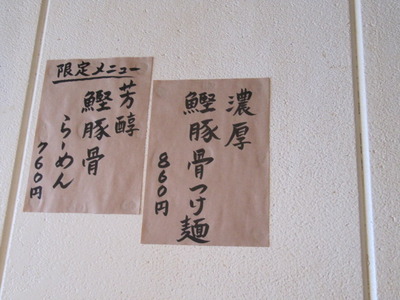 限定メニュー
芳醇
鰹豚骨
らーめん
760円
濃厚
鰹豚骨つけ麺
860円